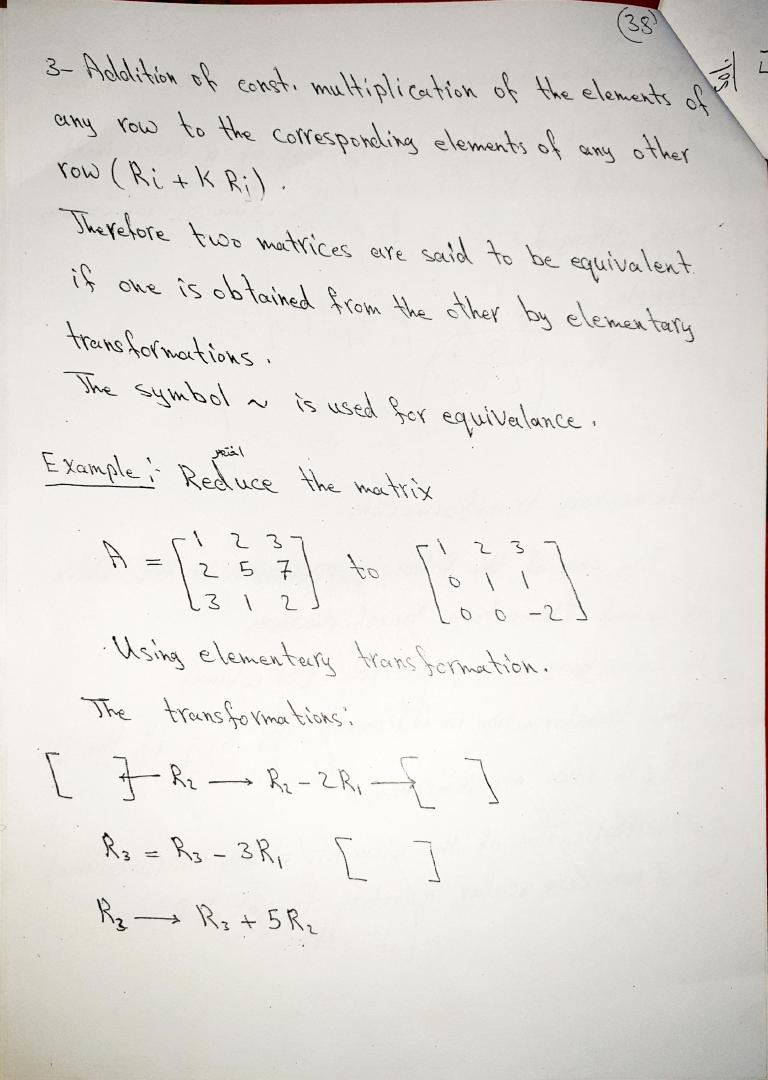 (38)
3- Addition of const. multiplication of the elements of
any row to the corresponding elements of any other
row (Ri + K Rj).
Therefore two matrices are said to be equivalent
if one is obtained from the other by elementary
transformations.
The symbol ~ is used for equivalance.
اختصر
Example:- Reduce the matrix
A = [1 2 3
2 5 7
3 1 2] to [1 2 3
0 1 1
0 0 -2]
Using elementary transformation.
The transformations:
[ ] R2 → R2 - 2R1 → [ ]
R3 = R3 - 3R1 [ ]
R3 → R3 + 5R2